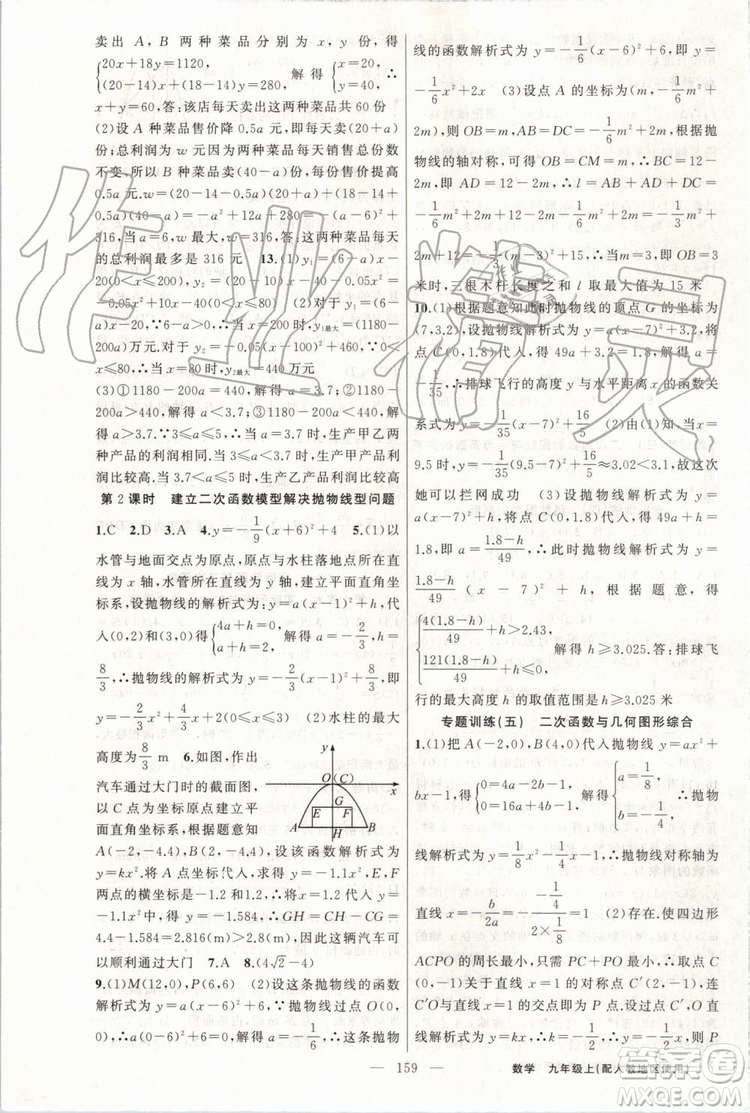 卖出A,B两种菜品分别为x,y份,根据题意得
{20x+18y=1120,
(20-14)x+(18-14)y=280, 解得{x=20,
y=40, ∴
x+y=60,答:该店每天卖出这两种菜品共60份
(2)设A种菜品售价降0.5a元,即每天卖(20+a)
份;总利润为w元因为两种菜品每天销售总份数
不变,所以B种菜品卖(40-a)份,每份售价提高
0.5a元.w=(20-14-0.5a)(20+a)+(18-14+
0.5a)(40-a)=-a²+12a+280=-(a-6)²+
316,当a=6,w最大,w=316,答:这两种菜品每天
的总利润最多是316元 13.(1)y₁=(3-a)x(0≤
x≤200),y₂=10x-40-0.05x²=
-0.05x²+10x-40(0≤x≤80) (2)对于y₁=
(3-a)x,∵3-a>0,∴当x=200时,y₁最大=(1180-
200a)万元,对于y₂=-0.05(x-100)²+460,∵0<
x≤80,∴当x=80时,y₂最大=440万元
(3)①1180-200a=440,解得a=3.7;②1180-
200a>440,解得a<3.7;③1180-200a<440,解
得a>3.7;∵3≤a≤5,∴当a=3.7时,生产甲乙两
种产品的利润相同.当3≤a<3.7时,生产甲产品
利润比较高.当3.7<a≤5时,生产乙产品利润比较高
第2课时 建立二次函数模型解决抛物线型问题
1.C 2.D 3.A 4.y=-1/9(x+6)²+4 5.(1)以
水管与地面交点为原点,原点与水柱落地点所在直
线为x轴,水管所在直线为y轴,建立平面直角坐
标系,设抛物线的解析式为:y=a(x-1)²+h,代
入(0,2)和(3,0)得{4a+h=0,
a+h=2, 解得{a=-2/3,
h=8/3, ∴
8/3,∴抛物线的解析式为y=-2/3(x-1)²+8/3,即y=
-2/3x²+4/3x+2(0≤x≤3) (2)水柱的最大
高度为8/3m 6.如图,作出
汽车通过大门时的截面图,
以C点为坐标原点建立平
面直角坐标系,根据题意知
A(-2,-4.4),B(2,-4.4),设该函数解析式为
y=kx².将A点坐标代入,得y=-1.1x².E,F
两点的横坐标是-1.2和1.2,将x=1.2代入y=
-1.1x²中得y=-1.584,∴GH=CH-CG=
4.4-1.584=2.816(m)>2.8(m),因此这辆汽车可
以顺利通过大门 7.A 8.(4√2-4)
9.(1)M(12,0),P(6,6) (2)设这条抛物线的函数
解析式为y=a(x-6)²+6,∵抛物线过点O(0,
0),∴a(0-6)²+6=0,解得a=-1/6,∴这条抛物
线的函数解析式为y=-1/6(x-6)²+6,即y=
-1/6x²+2x (3)设点A的坐标为(m,-1/6m²+
2m),则OB=m,AB=DC=-1/6m²+2m,根据抛
物线的轴对称,可得OB=CM=m,∴BC=12-
2m,即AD=12-2m,∴l=AB+AD+DC=
-1/6m²+2m+12-2m-1/6m²+2m=-1/3m²+
2m+12=-1/3(m-3)²+15,∴当m=3,即OB=3
米时,三根木杆长度之和l取最大值为15米
10.(1)根据题意知此时抛物线的顶点G的坐标为
(7,3.2),设抛物线解析式为y=a(x-7)²+3.2,将
点C(0,1.8)代入,得49a+3.2=1.8,解得a=
-1/35,∴排球飞行的高度y与水平距离x的函数关
系式为y=-1/35(x-7)²+16/5 (2)由(1)知,当x=
9.5时,y=-1/35(9.5-7)²+16/5≈3.02<3.1,所以
她可以拦网成功 (3)设抛物线解析式为y=
a(x-7)²+h,将点C(0,1.8)代入,得49a+h=
1.8,即a=(1.8-h)/49,∴此时抛物线解析式为y=
(1.8-h)/49(x-7)²+h,根据题意,得
{4(1.8-h)/49+h>2.43,
121(1.8-h)/49+h≤0, 解得h≥3.025.答:排球飞
行的最大高度h的取值范围是h≥3.025米
专题训练(五) 二次函数与几何图形综合
1.(1)把A(-2,0),B(4,0)代入抛物线y=ax²+
bx-1,得{0=4a-2b-1,
0=16a+4b-1, 解得{a=1/8,
b=-1/4, ∴抛物
线解析式为y=1/8x²-1/4x-1,∴抛物线对称轴为
直线x=-b/2a=-(-1/4)/(2×1/8)=1 (2)存在,使四边形
ACPO的周长最小,只需PC+PO最小,∴取点C
(0,-1)关于直线x=1的对称点C′(2,-1),连
C′O与直线x=1的交点即为P点.设过点C′,O
直线解析式为y=kx,∴k=-1/2,∴y=-1/2x,则P
y
O(C)
x
E
G
F
A
H
B
159
数学 九年级上(配人教地区使用)
作业精灵